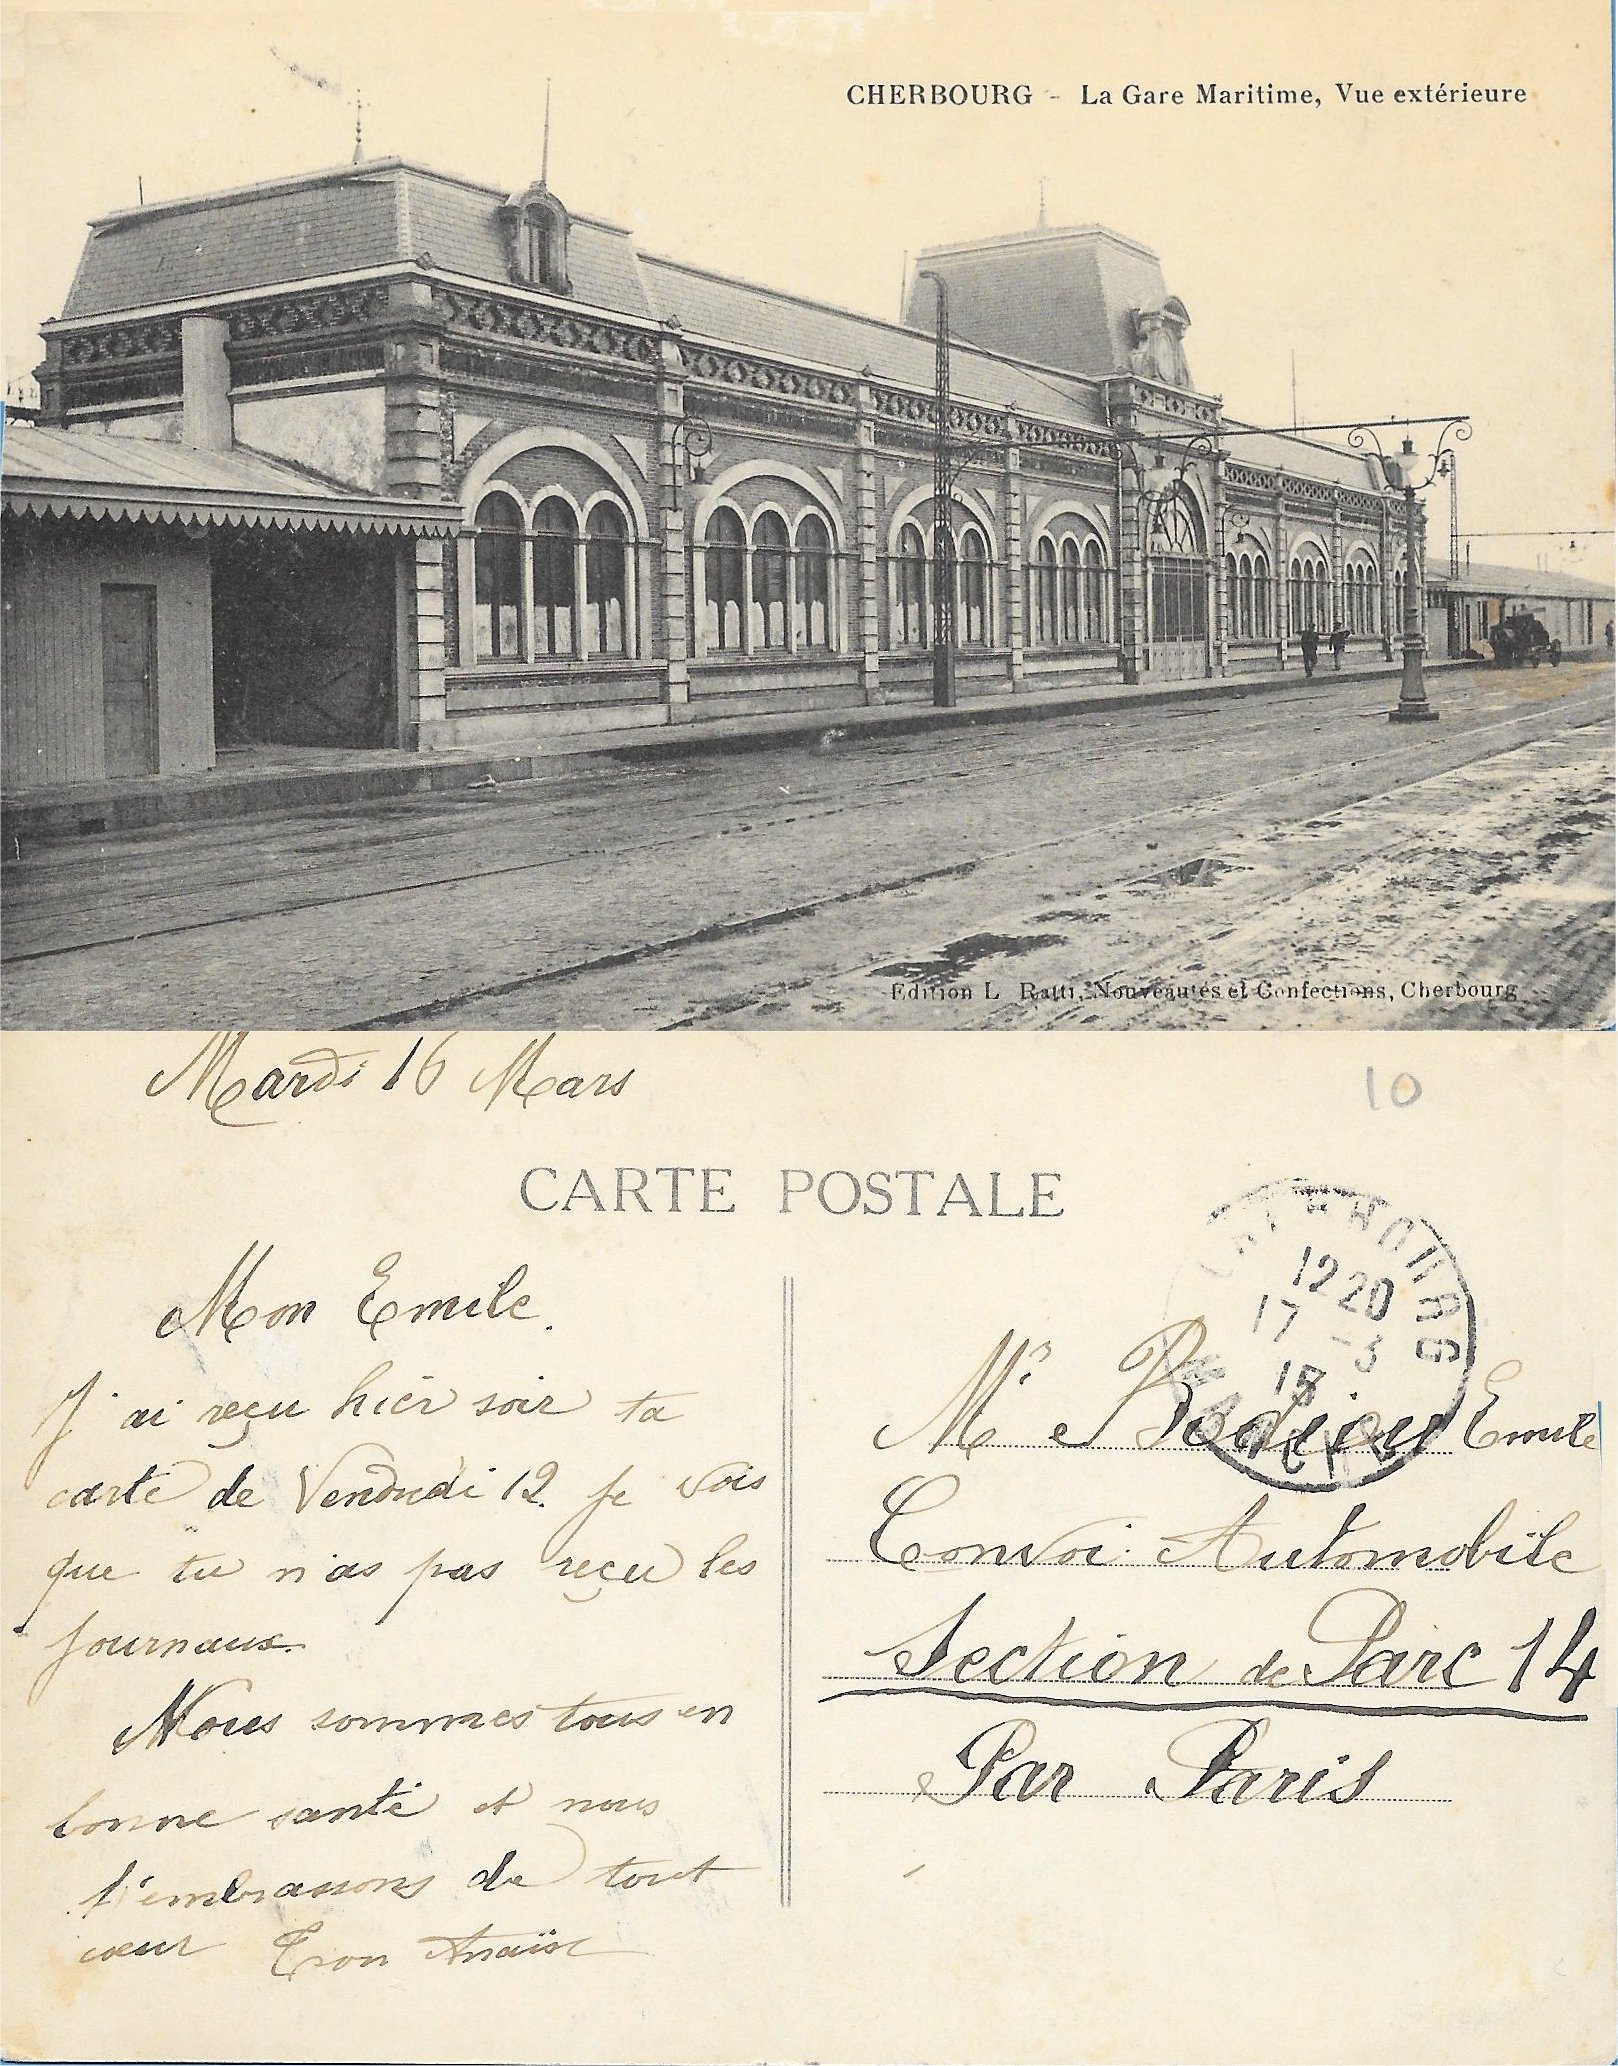 CHERBOURG - La Gare Maritime, Vue extérieure
Edition L. Ratti, Nouveautés et Confections, Cherbourg
Mardi 16 Mars
10
CARTE POSTALE
CHERBOURG
12 20
17 -3
15
MANCHE
Mon Emile.
J'ai reçu hier soir ta
carte de Vendredi 12. Je vois
que tu n'as pas reçu les
journaux.
Nous sommes tous en
bonne santé et nous
t'embrassons de tout
cœur Anaïse
Mr Emile
Convoi Automobile
Section de Parc 14
Par Paris